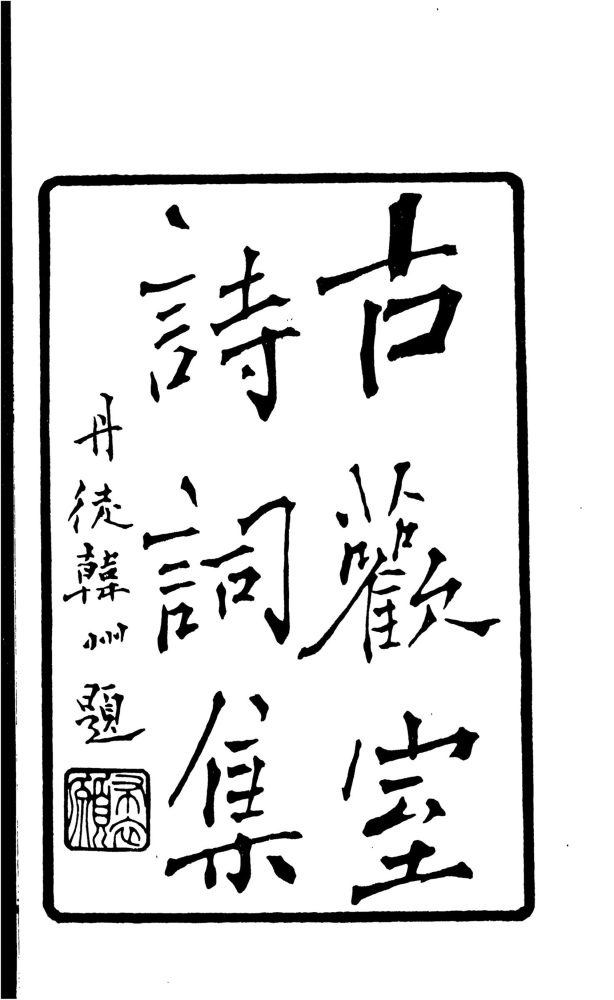 古歡室
詩詞集
丹徒韓州題